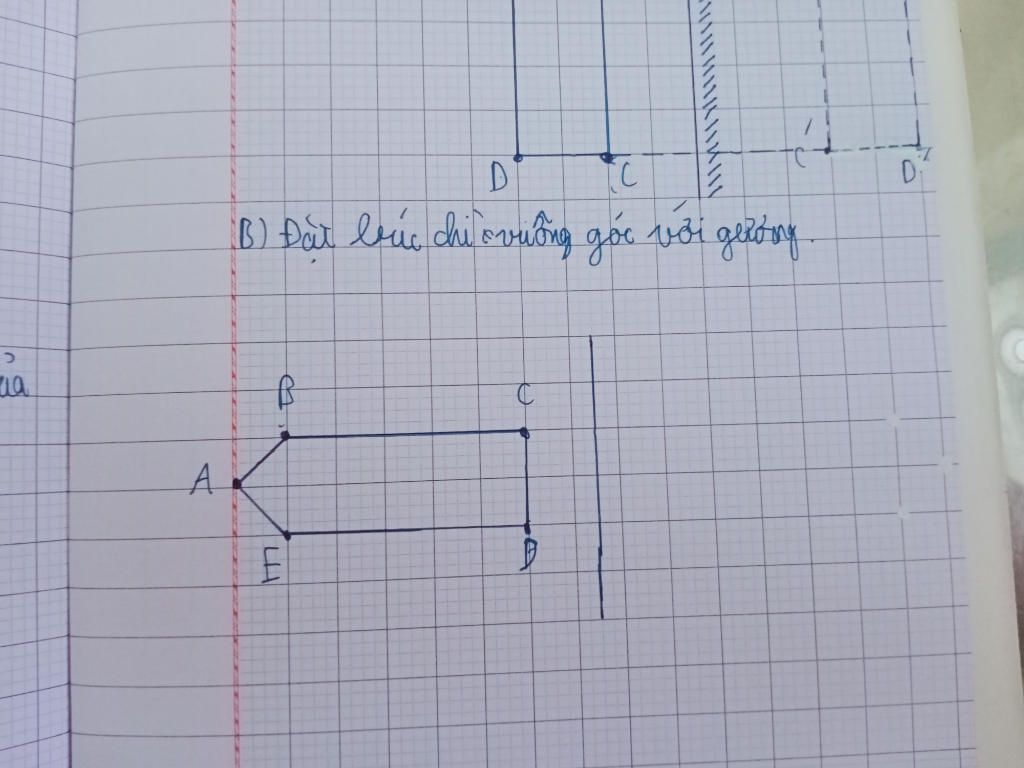 D C C' D'
B) Đặt bút chì vuông góc với gương.
ủa
B C
A
E D